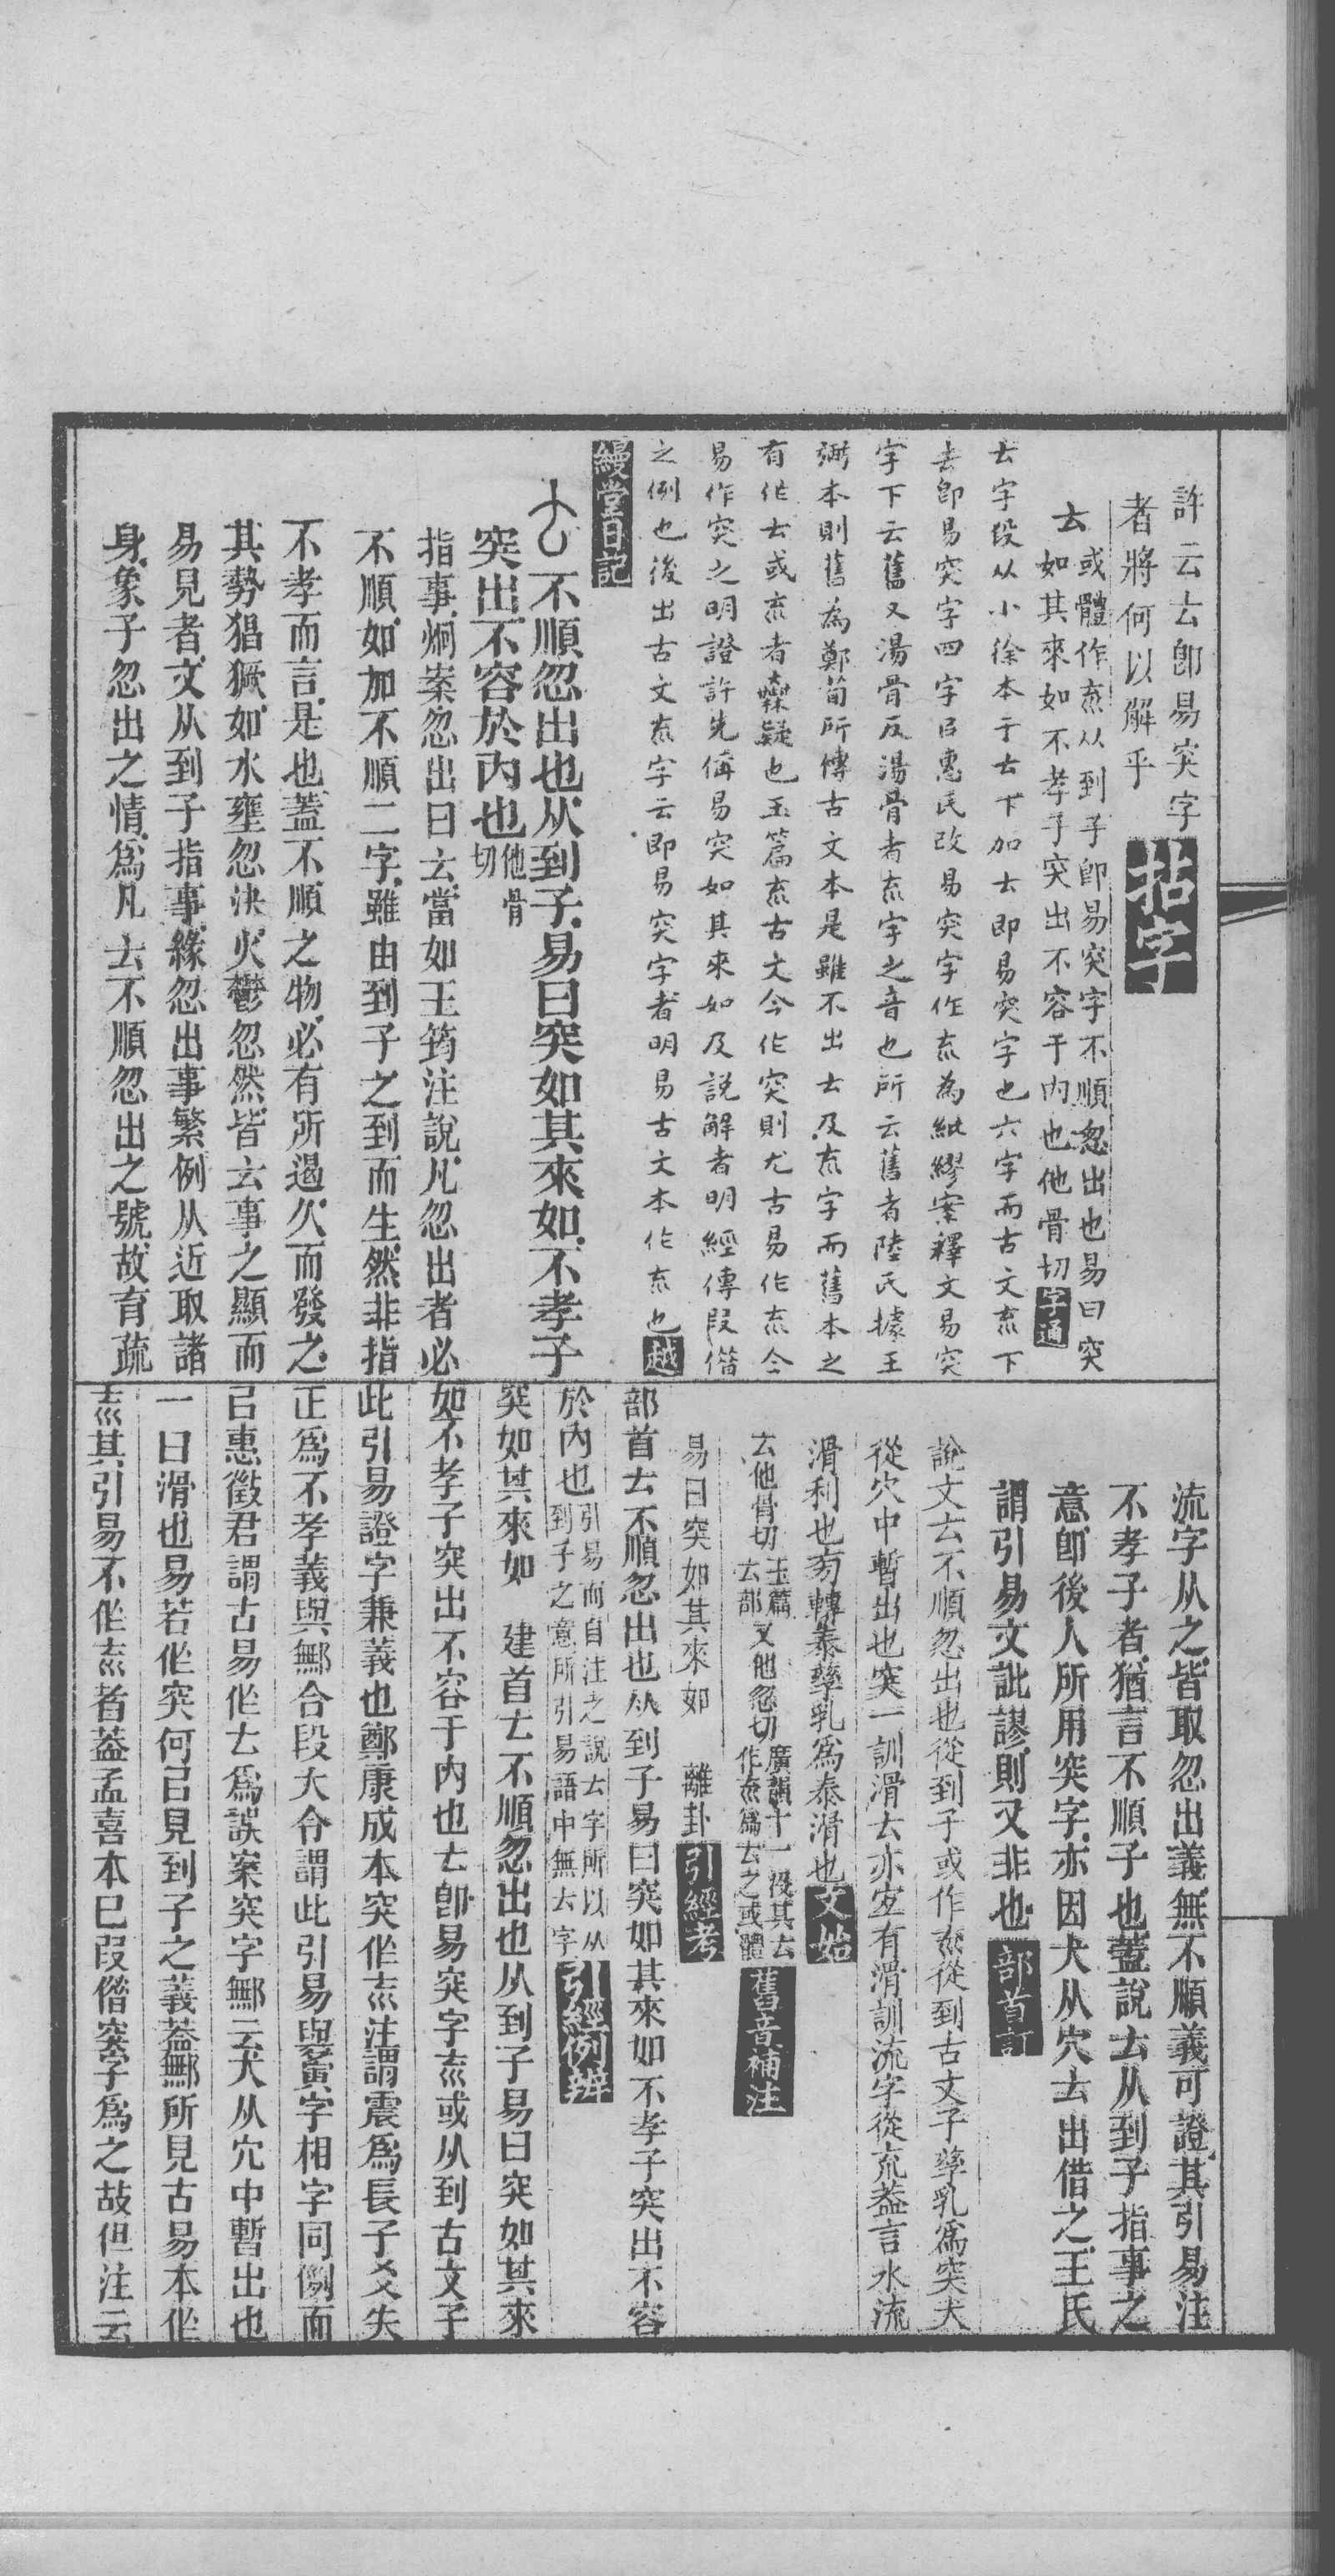 許云𠫓卽易突字
者將何以解乎 拈字
𠫓 或體作㐬从到子卽易突字不順忽出也易曰突
如其來如不孝子突出不容于內也他骨切 字通
𠫓字段从小徐本于𠫓下加𠫓即易突字也六字而古文㐬下
𠫓卽易突字四字㠯惠氏改易突字作㐬為紕繆案釋文易突
字下云舊又湯骨反湯骨者㐬字之音也所云舊者陸氏據王
弼本則舊為鄭荀所傳古文本是雖不出𠫓及㐬字而舊本之
有作𠫓或㐬者㯱疑也玉篇㐬古文今作突則尤古易作㐬今
易作突之明證許先偁易突如其來如及說解者明經傳叚借
之例也後出古文㐬字云即易突字者明易古文本作㐬也 越
縵堂日記
𠫓 不順忽出也从到子易曰突如其來如不孝子
突出不容於內也 他骨
切
指事炯案忽出曰𠫓當如王筠注說凡忽出者必
不順如加不順二字雖由到子之到而生然非指
不孝而言是也蓋不順之物必有所遏久而發之
其勢猖獗如水壅忽決火鬱忽然皆𠫓事之顯而
易見者文从到子指事緣忽出事繁例从近取諸
身象子忽出之情爲凡𠫓不順忽出之號故育疏
流字从之皆取忽出義無不順義可證其引易注
不孝子者猶言不順子也蓋說𠫓从到子指事之
意卽後人所用突字亦因犬从穴𠫓出借之王氏
謂引易文訛謬則又非也 部首訂
說文𠫓不順忽出也從到子或作㐬從到古文子孳乳爲突犬
從穴中暫出也突一訓滑𠫓亦宜有滑訓流字從㐬蓋言水流
滑利也旁轉泰孳乳爲泰滑也 文始
𠫓他骨切 玉篇
𠫓部 又他忽切 廣韻十一沒其𠫓
作㐬爲𠫓之或體 舊音補注
易曰突如其來如 離卦 引經考
部首𠫓不順忽出也从到子易曰突如其來如不孝子突出不容
於內也 引易而自注之說𠫓字所以从
到子之意所引易語中無𠫓字 引經例辨
突如其來如 建首𠫓不順忽出也从到子易曰突如其來
如不孝子突出不容于內也𠫓卽易突字㐬或从到古文子
此引易證字兼義也鄭康成本突作㐬注謂震爲長子爻失
正爲不孝義與鄦合段大令謂此引易與寷字相字同例而
㠯惠徵君謂古易作𠫓爲誤案突字鄦云犬从穴中暫出也
一曰滑也易若作突何㠯見到子之義蓋鄦所見古易本作
㐬其引易不作㐬者蓋孟喜本已叚借突字爲之故但注云